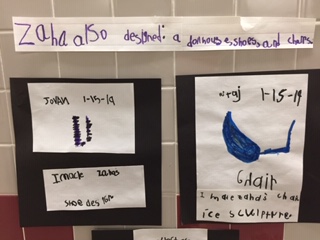 Zaha also designed: a donhouse, shoes, and chairs.
JOVAN 1-15-19
I made zahas
shoe design
1-15-19
Chair
I made zaha's chair
ice sculpture